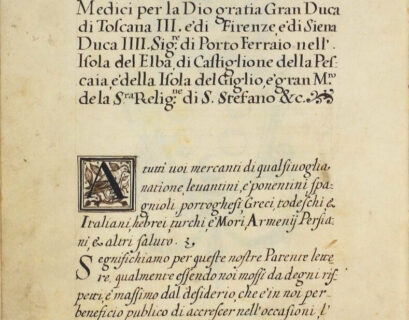 Medici per la Dio gratia Gran Duca
di Toscana III. e di Firenze, e di Siena
Duca IIII. Sig.re di Porto Ferraio nell'
Isola del Elba, di Castiglione della Pes-
caia, e della Isola del Giglio, e gran M.ro
de la S.ra Relig.ne di S. Stefano &c.
A tutti uoi mercanti di qual si uoglia
natione, leuantini, e ponentini, spa-
gnioli, portoghesi, Greci, todeschi, &
Italiani, hebrei, turchi, e Mori, Armenij, Persia-
ni, & altri saluto.
Segnifichiamo per queste nostre Patente lette-
re, qualmente essendo noi mossi da degni ris-
petti, e massimo dal desiderio, che è in noi per
beneficio publico di accrescer nell'occasioni, l'